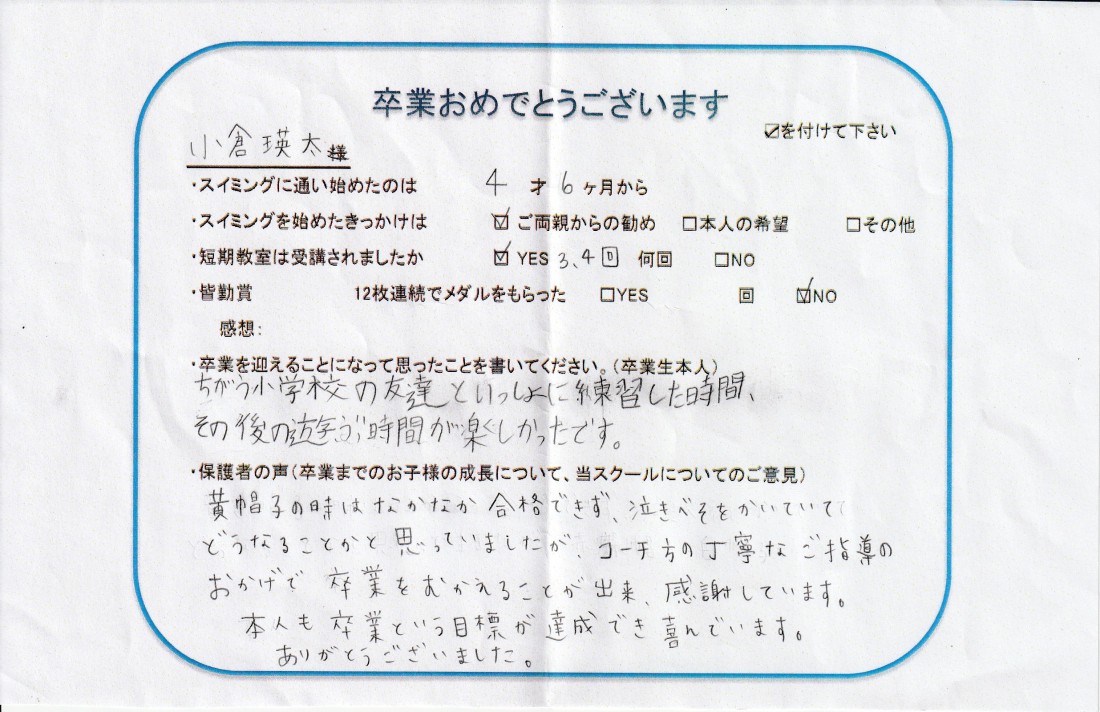 卒業おめでとうございます
☑を付けて下さい
小倉瑛太様
・スイミングに通い始めたのは 4 才 6 ヶ月から
・スイミングを始めたきっかけは ☑ご両親からの勧め □本人の希望 □その他
・短期教室は受講されましたか ☑YES 3、4回 何回 □NO
・皆勤賞 12枚連続でメダルをもらった □YES 回 ☑NO
感想:
・卒業を迎えることになって思ったことを書いてください。(卒業生本人)
ちがう小学校の友達といっしょに練習した時間、
その後の遊ぶ時間が楽しかったです。
・保護者の声(卒業までのお子様の成長について、当スクールについてのご意見)
黄帽子の時はなかなか合格できず、泣きべそをかいていて
どうなることかと思っていましたが、コーチ方の丁寧なご指導の
おかげで卒業をむかえることが出来、感謝しています。
本人も卒業という目標が達成でき喜んでいます。
ありがとうございました。